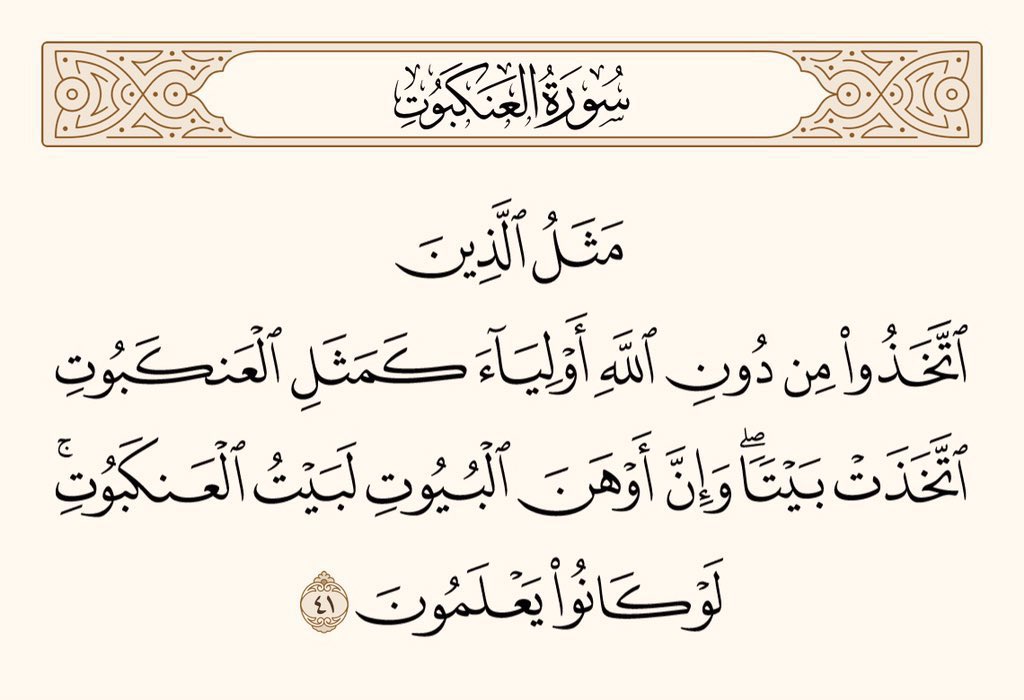 سُورَةُ العَنكَبُوتِ
مَثَلُ ٱلَّذِينَ
ٱتَّخَذُواْ مِن دُونِ ٱللَّهِ أَوۡلِيَآءَ كَمَثَلِ ٱلۡعَنكَبُوتِ
ٱتَّخَذَتۡ بَيۡتٗاۖ وَإِنَّ أَوۡهَنَ ٱلۡبُيُوتِ لَبَيۡتُ ٱلۡعَنكَبُوتِۚ
لَوۡ كَانُواْ يَعۡلَمُونَ ٤١